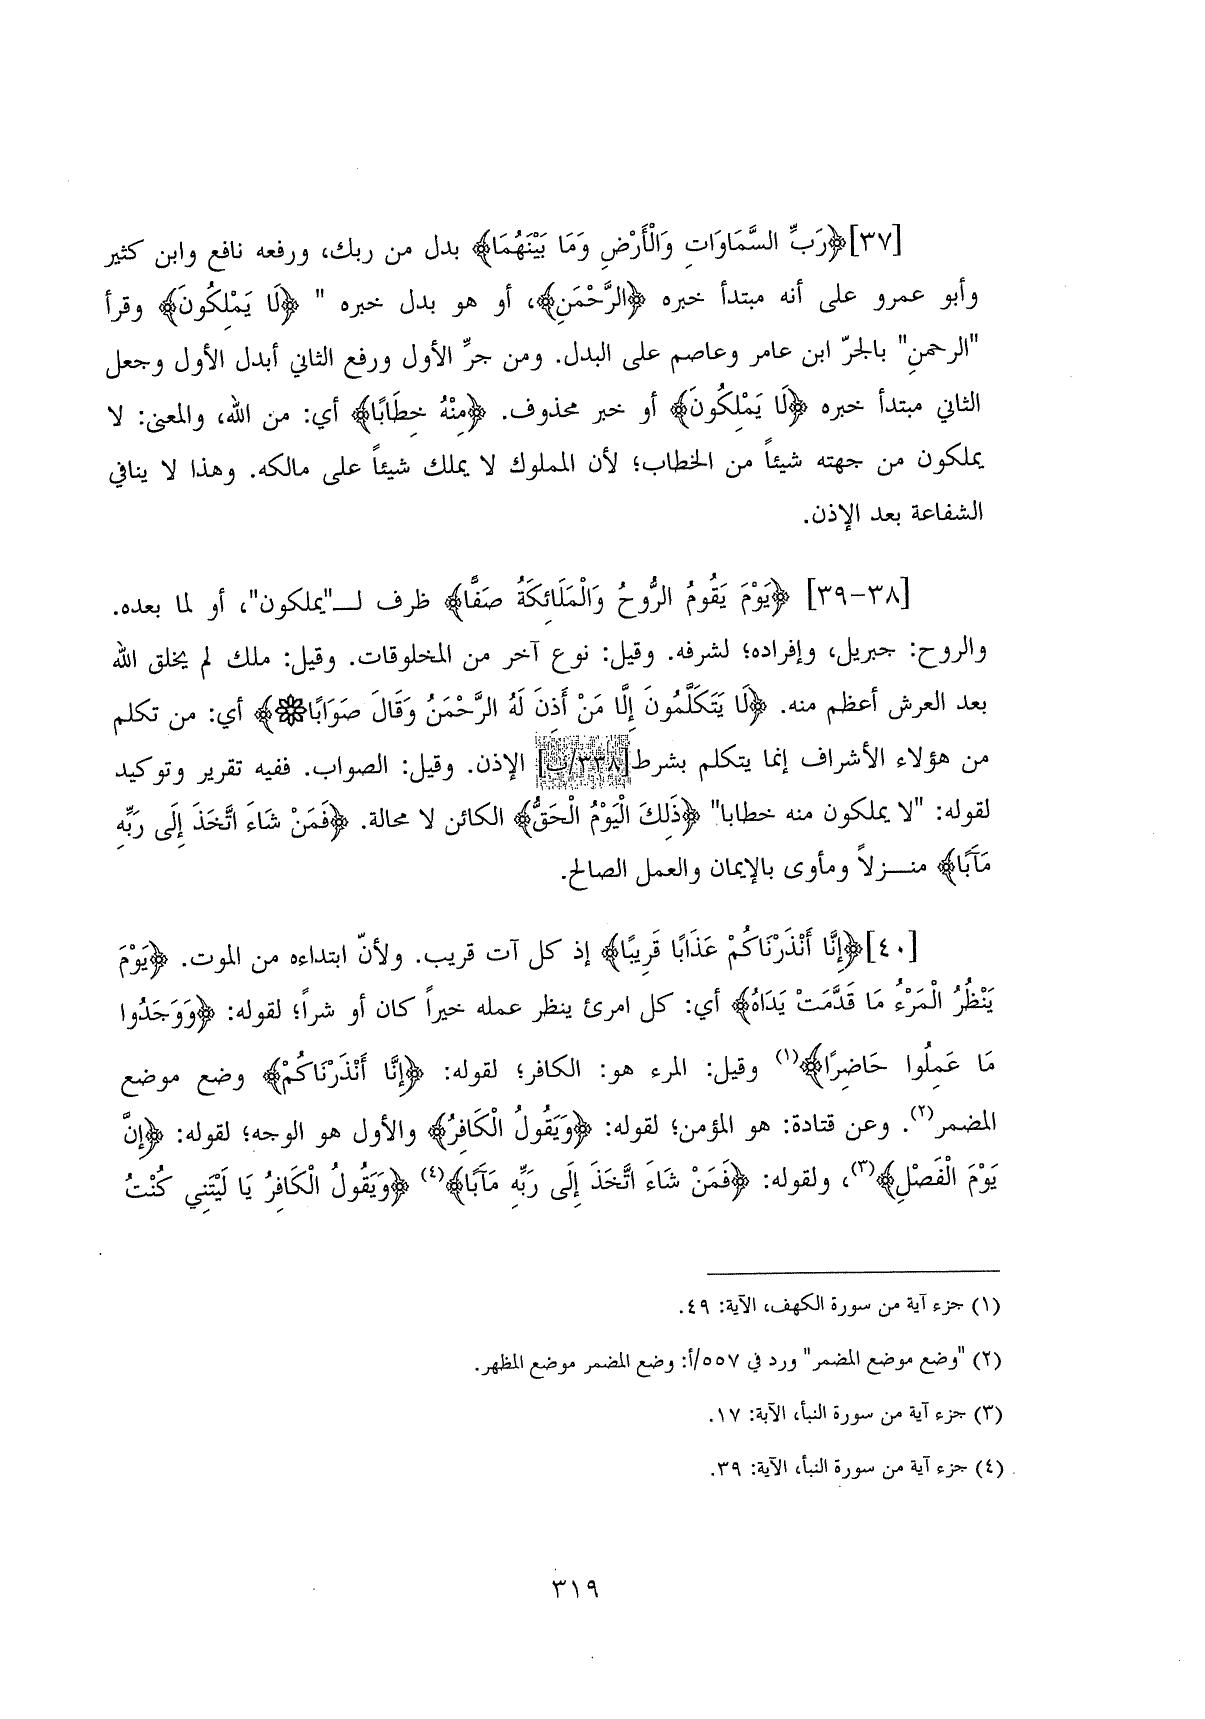 [٣٧]﴿رَبِّ السَّمَاوَاتِ وَالْأَرْضِ وَمَا بَيْنَهُمَا﴾ بدل من ربك، ورفعه نافع وابن كثير
وأبو عمرو على أنه مبتدأ خبره ﴿الرَّحْمَنِ﴾، أو هو بدل خبره " ﴿لَا يَمْلِكُونَ﴾ وقرأ
"الرحمنِ" بالجرّ ابن عامر وعاصم على البدل. ومن جرِّ الأول ورفع الثاني أبدل الأول وجعل
الثاني مبتدأ خبره ﴿لَا يَمْلِكُونَ﴾ أو خبر محذوف. ﴿مِنْهُ خِطَابًا﴾ أي: من الله، والمعنى: لا
يملكون من جهته شيئاً من الخطاب؛ لأن المملوك لا يملك شيئاً على مالكه. وهذا لا ينافي
الشفاعة بعد الإذن.
[٣٨-٣٩] ﴿يَوْمَ يَقُومُ الرُّوحُ وَالْمَلَائِكَةُ صَفًّا﴾ ظرف لـ"يملكون"، أو لما بعده.
والروح: جبريل، وإفراده؛ لشرفه. وقيل: نوع آخر من المخلوقات. وقيل: ملك لم يخلق الله
بعد العرش أعظم منه. ﴿لَا يَتَكَلَّمُونَ إِلَّا مَنْ أَذِنَ لَهُ الرَّحْمَنُ وَقَالَ صَوَابًا۞﴾ أي: من تكلم
من هؤلاء الأشراف إنما يتكلم بشرط[٣٣٨/ب] الإذن. وقيل: الصواب. ففيه تقرير وتوكيد
لقوله: "لا يملكون منه خطابا" ﴿ذَلِكَ الْيَوْمُ الْحَقُّ﴾ الكائن لا محالة. ﴿فَمَنْ شَاءَ اتَّخَذَ إِلَى رَبِّهِ
مَآبًا﴾ منـزلاً ومأوى بالإيمان والعمل الصالح.
[٤٠]﴿إِنَّا أَنْذَرْنَاكُمْ عَذَابًا قَرِيبًا﴾ إذ كل آت قريب. ولأنّ ابتداءه من الموت. ﴿يَوْمَ
يَنْظُرُ الْمَرْءُ مَا قَدَّمَتْ يَدَاهُ﴾ أي: كل امرئ ينظر عمله خيراً كان أو شراً؛ لقوله: ﴿وَوَجَدُوا
مَا عَمِلُوا حَاضِرًا﴾(١) وقيل: المرء هو: الكافر؛ لقوله: ﴿إِنَّا أَنْذَرْنَاكُمْ﴾ وضع موضع
المضمر(٢). وعن قتادة: هو المؤمن؛ لقوله: ﴿وَيَقُولُ الْكَافِرُ﴾ والأول هو الوجه؛ لقوله: ﴿إِنَّ
يَوْمَ الْفَصْلِ﴾(٣)، ولقوله: ﴿فَمَنْ شَاءَ اتَّخَذَ إِلَى رَبِّهِ مَآبًا﴾(٤) ﴿وَيَقُولُ الْكَافِرُ يَا لَيْتَنِي كُنْتُ
(١) جزء آية من سورة الكهف، الآية: ٤٩.
(٢) "وضع موضع المضمر" ورد في ٥٥٧/أ: وضع المضمر موضع المظهر.
(٣) جزء آية من سورة النبأ، الآية: ١٧.
(٤) جزء آية من سورة النبأ، الآية: ٣٩.
٣١٩